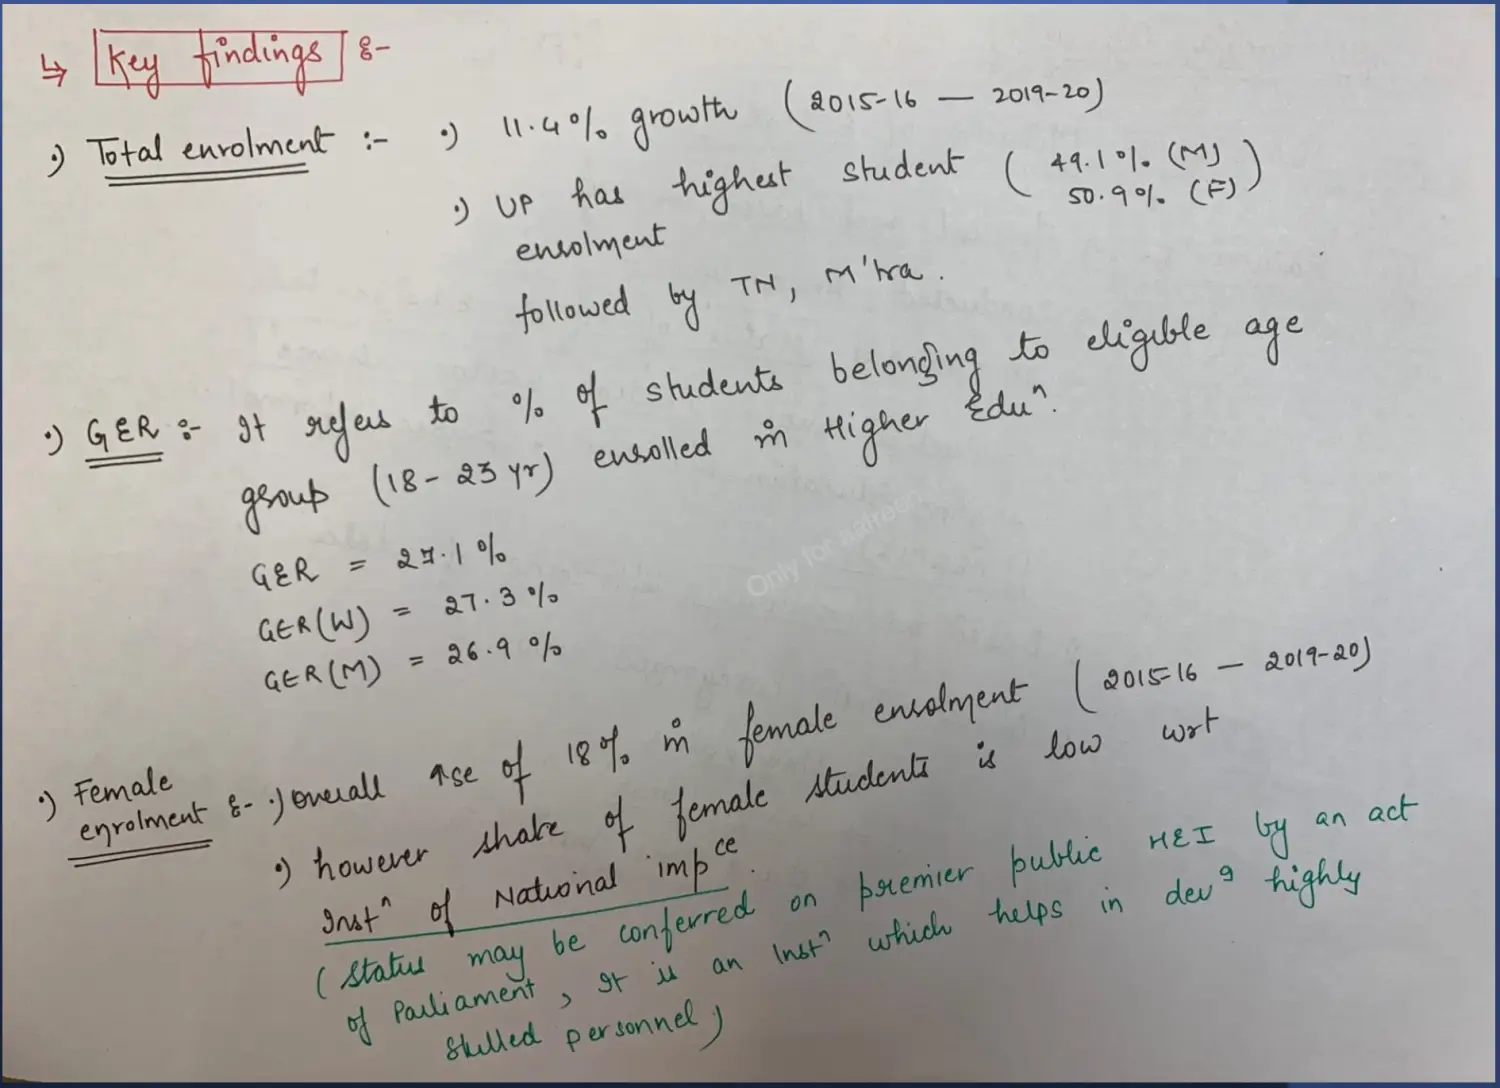 ↳ Key findings :-
•) Total enrolment :- •) 11.4% growth (2015-16 — 2019-20)
•) UP has highest student ( 49.1% (M)
50.9% (F) )
enrolment
followed by TN, M'tra.
•) GER :- It refers to % of students belonging to eligible age
group (18-23 yr) enrolled in Higher Eduⁿ.
GER = 27.1%
GER(W) = 27.3%
GER(M) = 26.9%
•) Female
enrolment :- •) overall ↑se of 18% in female enrolment (2015-16 — 2019-20)
•) however share of female students is low wrt
Instⁿ of National impᶜᵉ.
(Status may be conferred on premier public HEI by an act
of Parliament, It is an Instⁿ which helps in devᵍ highly
skilled personnel)
Only for